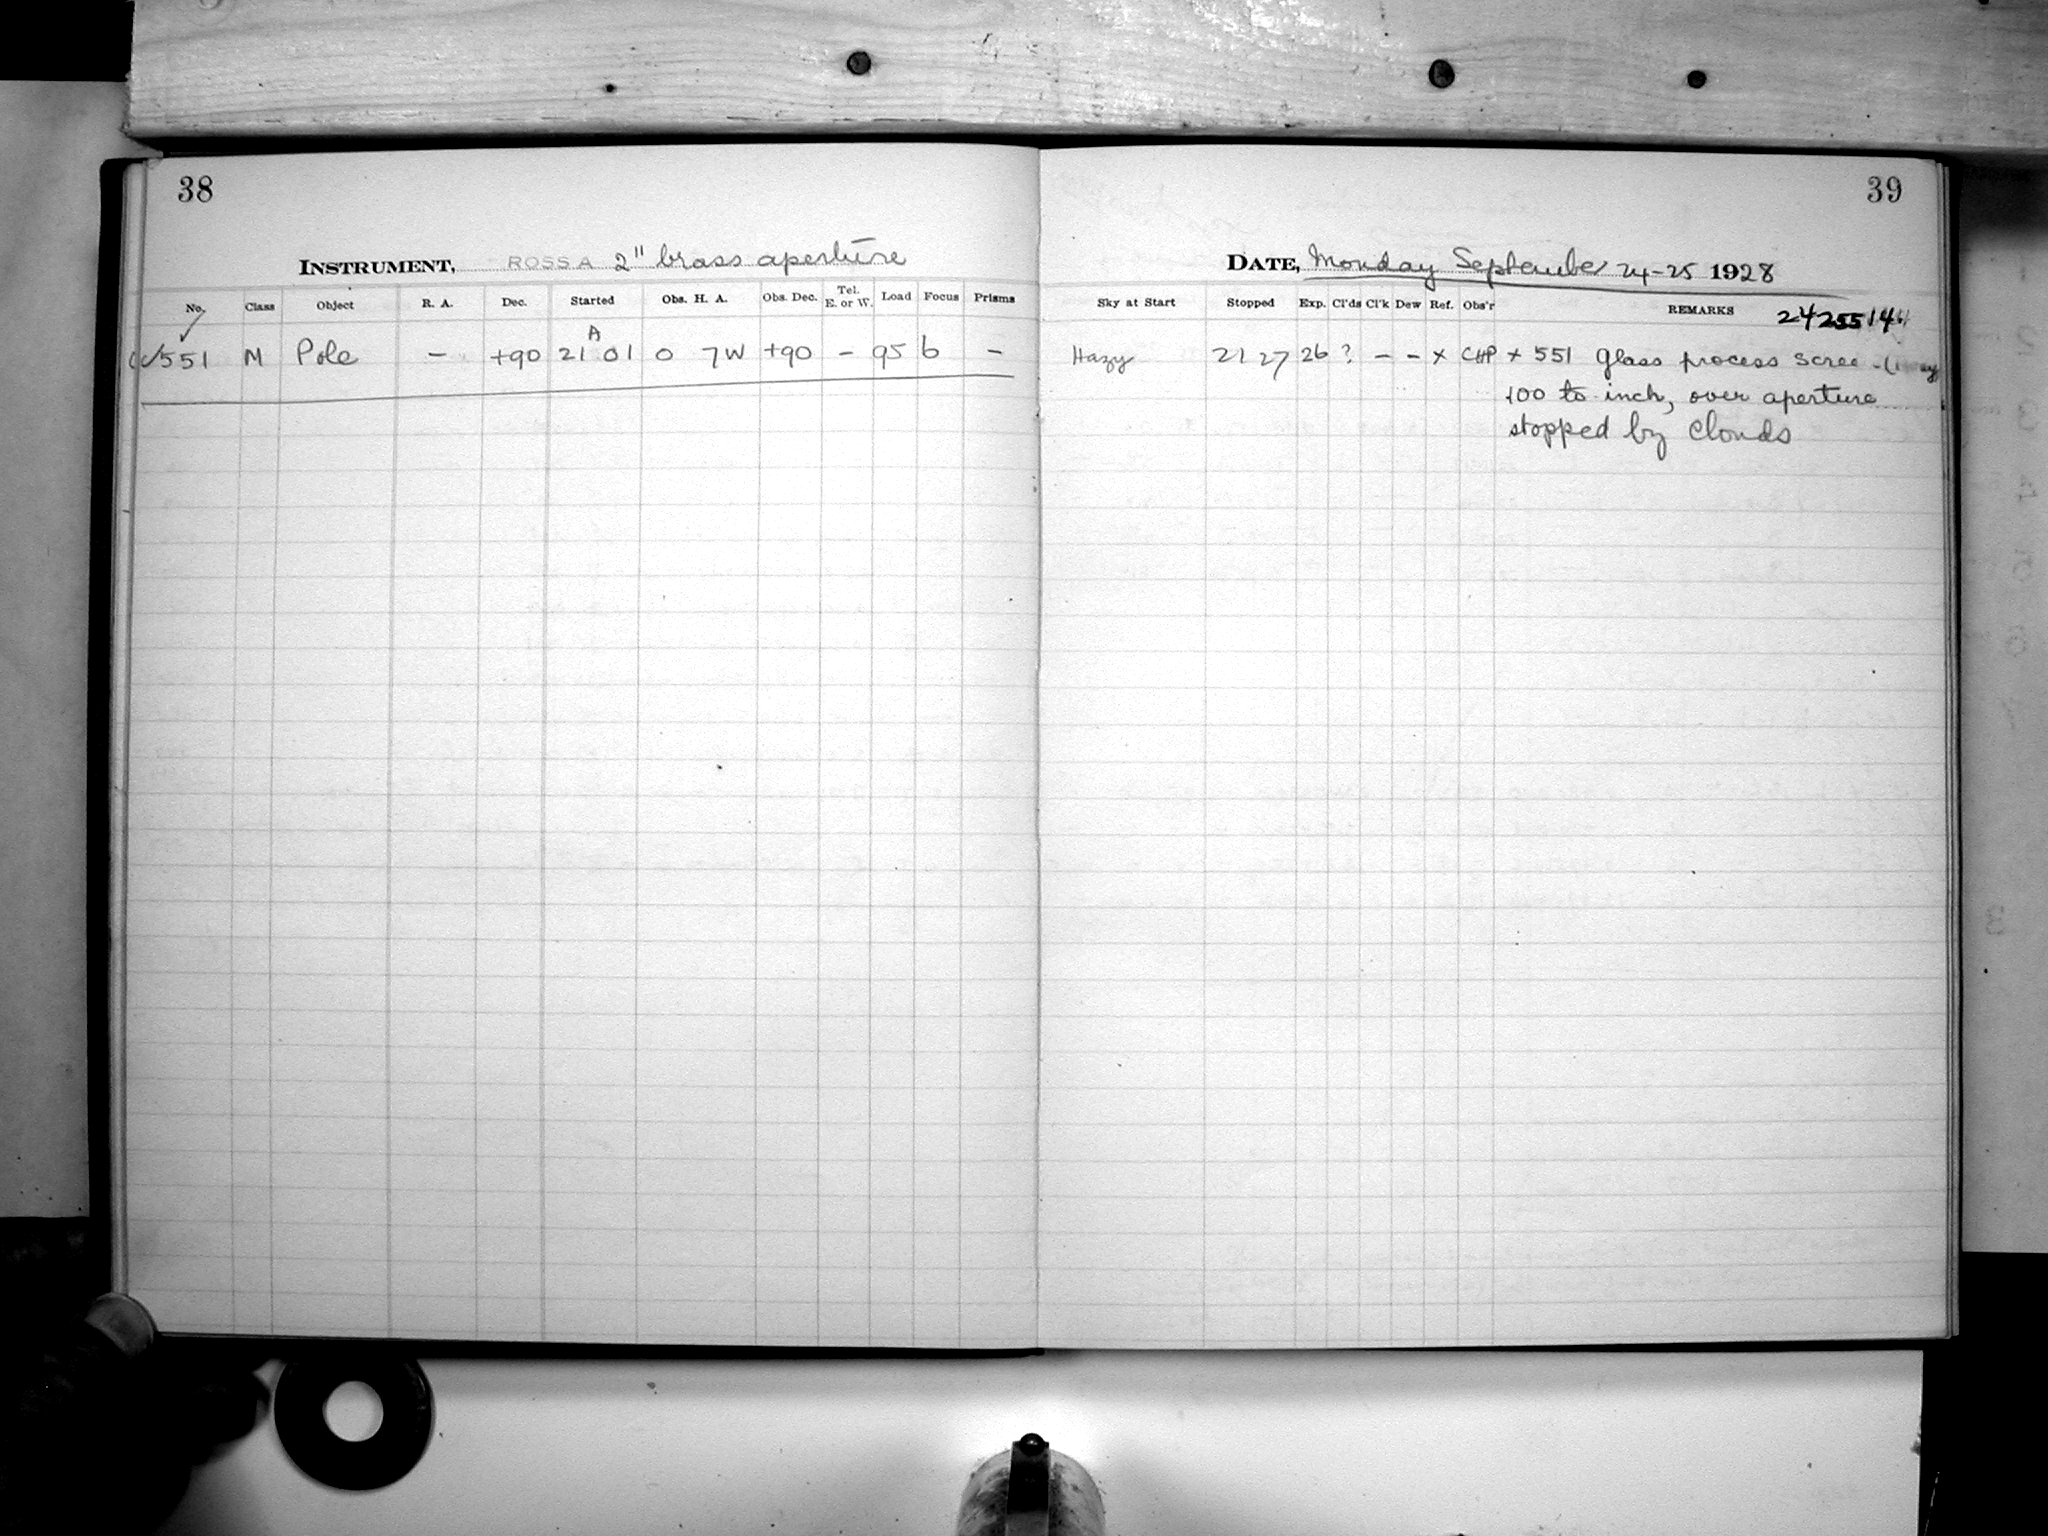 38
INSTRUMENT, ROSS A 2" brass aperture
No. Class Object R. A. Dec. Started Obs. H. A. Obs. Dec. Tel. E. or W. Load Focus Prisms
A
551 M Pole – +90 21 01 0 7W +90 – 95 6 –
39
DATE, Monday September 24-25 1928
Sky at Start Stopped Exp. Cl'ds Cl'k Dew Ref. Obs'r REMARKS
2425514
Hazy 21 27 26 ? – – x CHP x 551 Glass process
100 to inch, over aperture
stopped by clouds